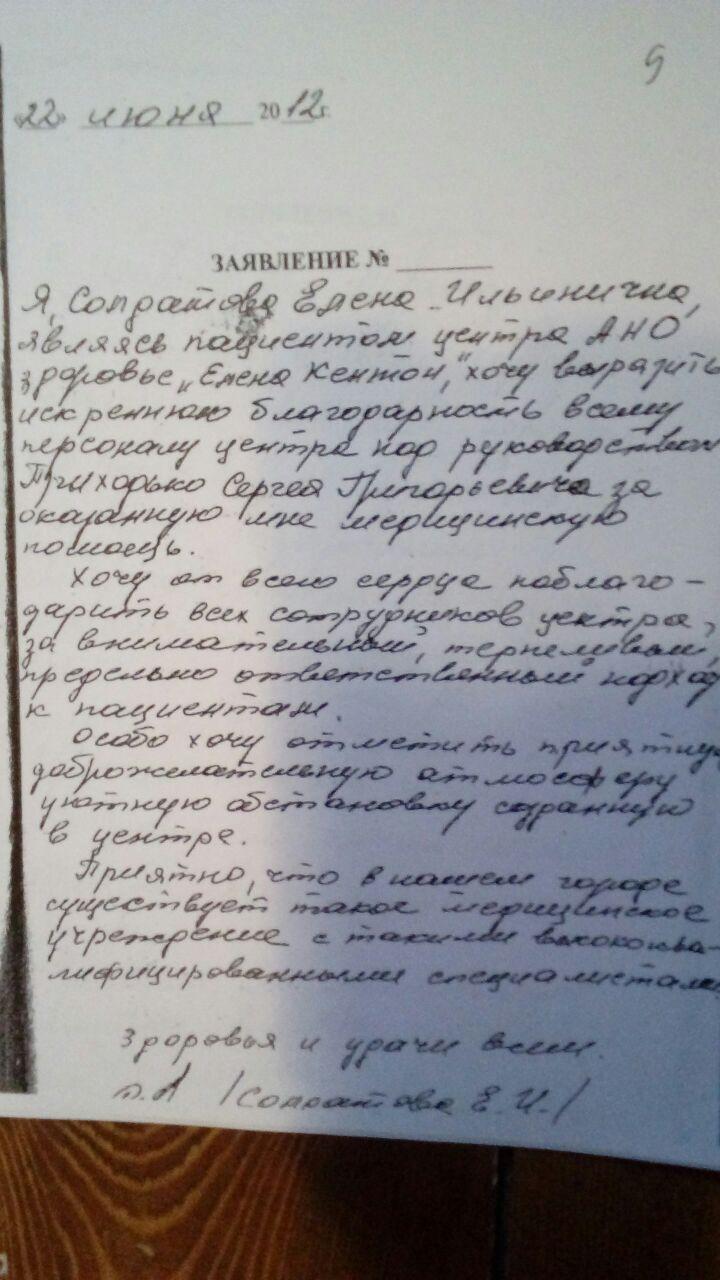 9
«22» июня 2012г.
ЗАЯВЛЕНИЕ № ______
Я, Солдатова Елена Ильинична,
являясь пациентом центра АНО
здоровье „Елена Кентон," хочу выразить
искреннюю благодарность всему
персоналу центра под руководством
Приходько Сергея Григорьевича за
оказанную мне медицинскую
помощь.
Хочу от всего сердца поблаго-
дарить всех сотрудников центра,
за внимательный, терпеливый,
предельно ответственный подход
к пациентам.
Особо хочу отметить приятную
доброжелательную атмосферу
уютную обстановку созданную
в центре.
Приятно, что в нашем городе
существует такое медицинское
учреждение с такими высококва-
лифицированными специалистами
Здоровья и удачи всем.
/Солдатова Е. И./